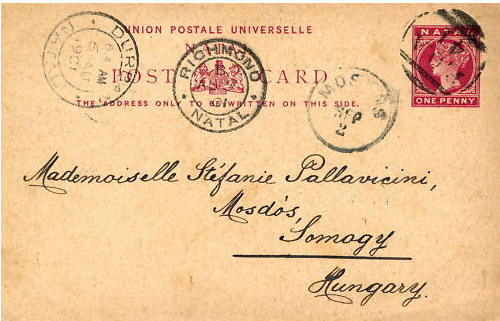 UNION POSTALE UNIVERSELLE
NATAL
POST CARD
THE ADDRESS ONLY TO BE WRITTEN ON THIS SIDE.
NATAL
ONE PENNY
DURBAN
NATAL
AU
RICHMOND
NATAL
MOSDÓS
SEP
2
Mademoiselle Stéfanie Pallavicini,
Mosdós,
Somogy
Hungary.